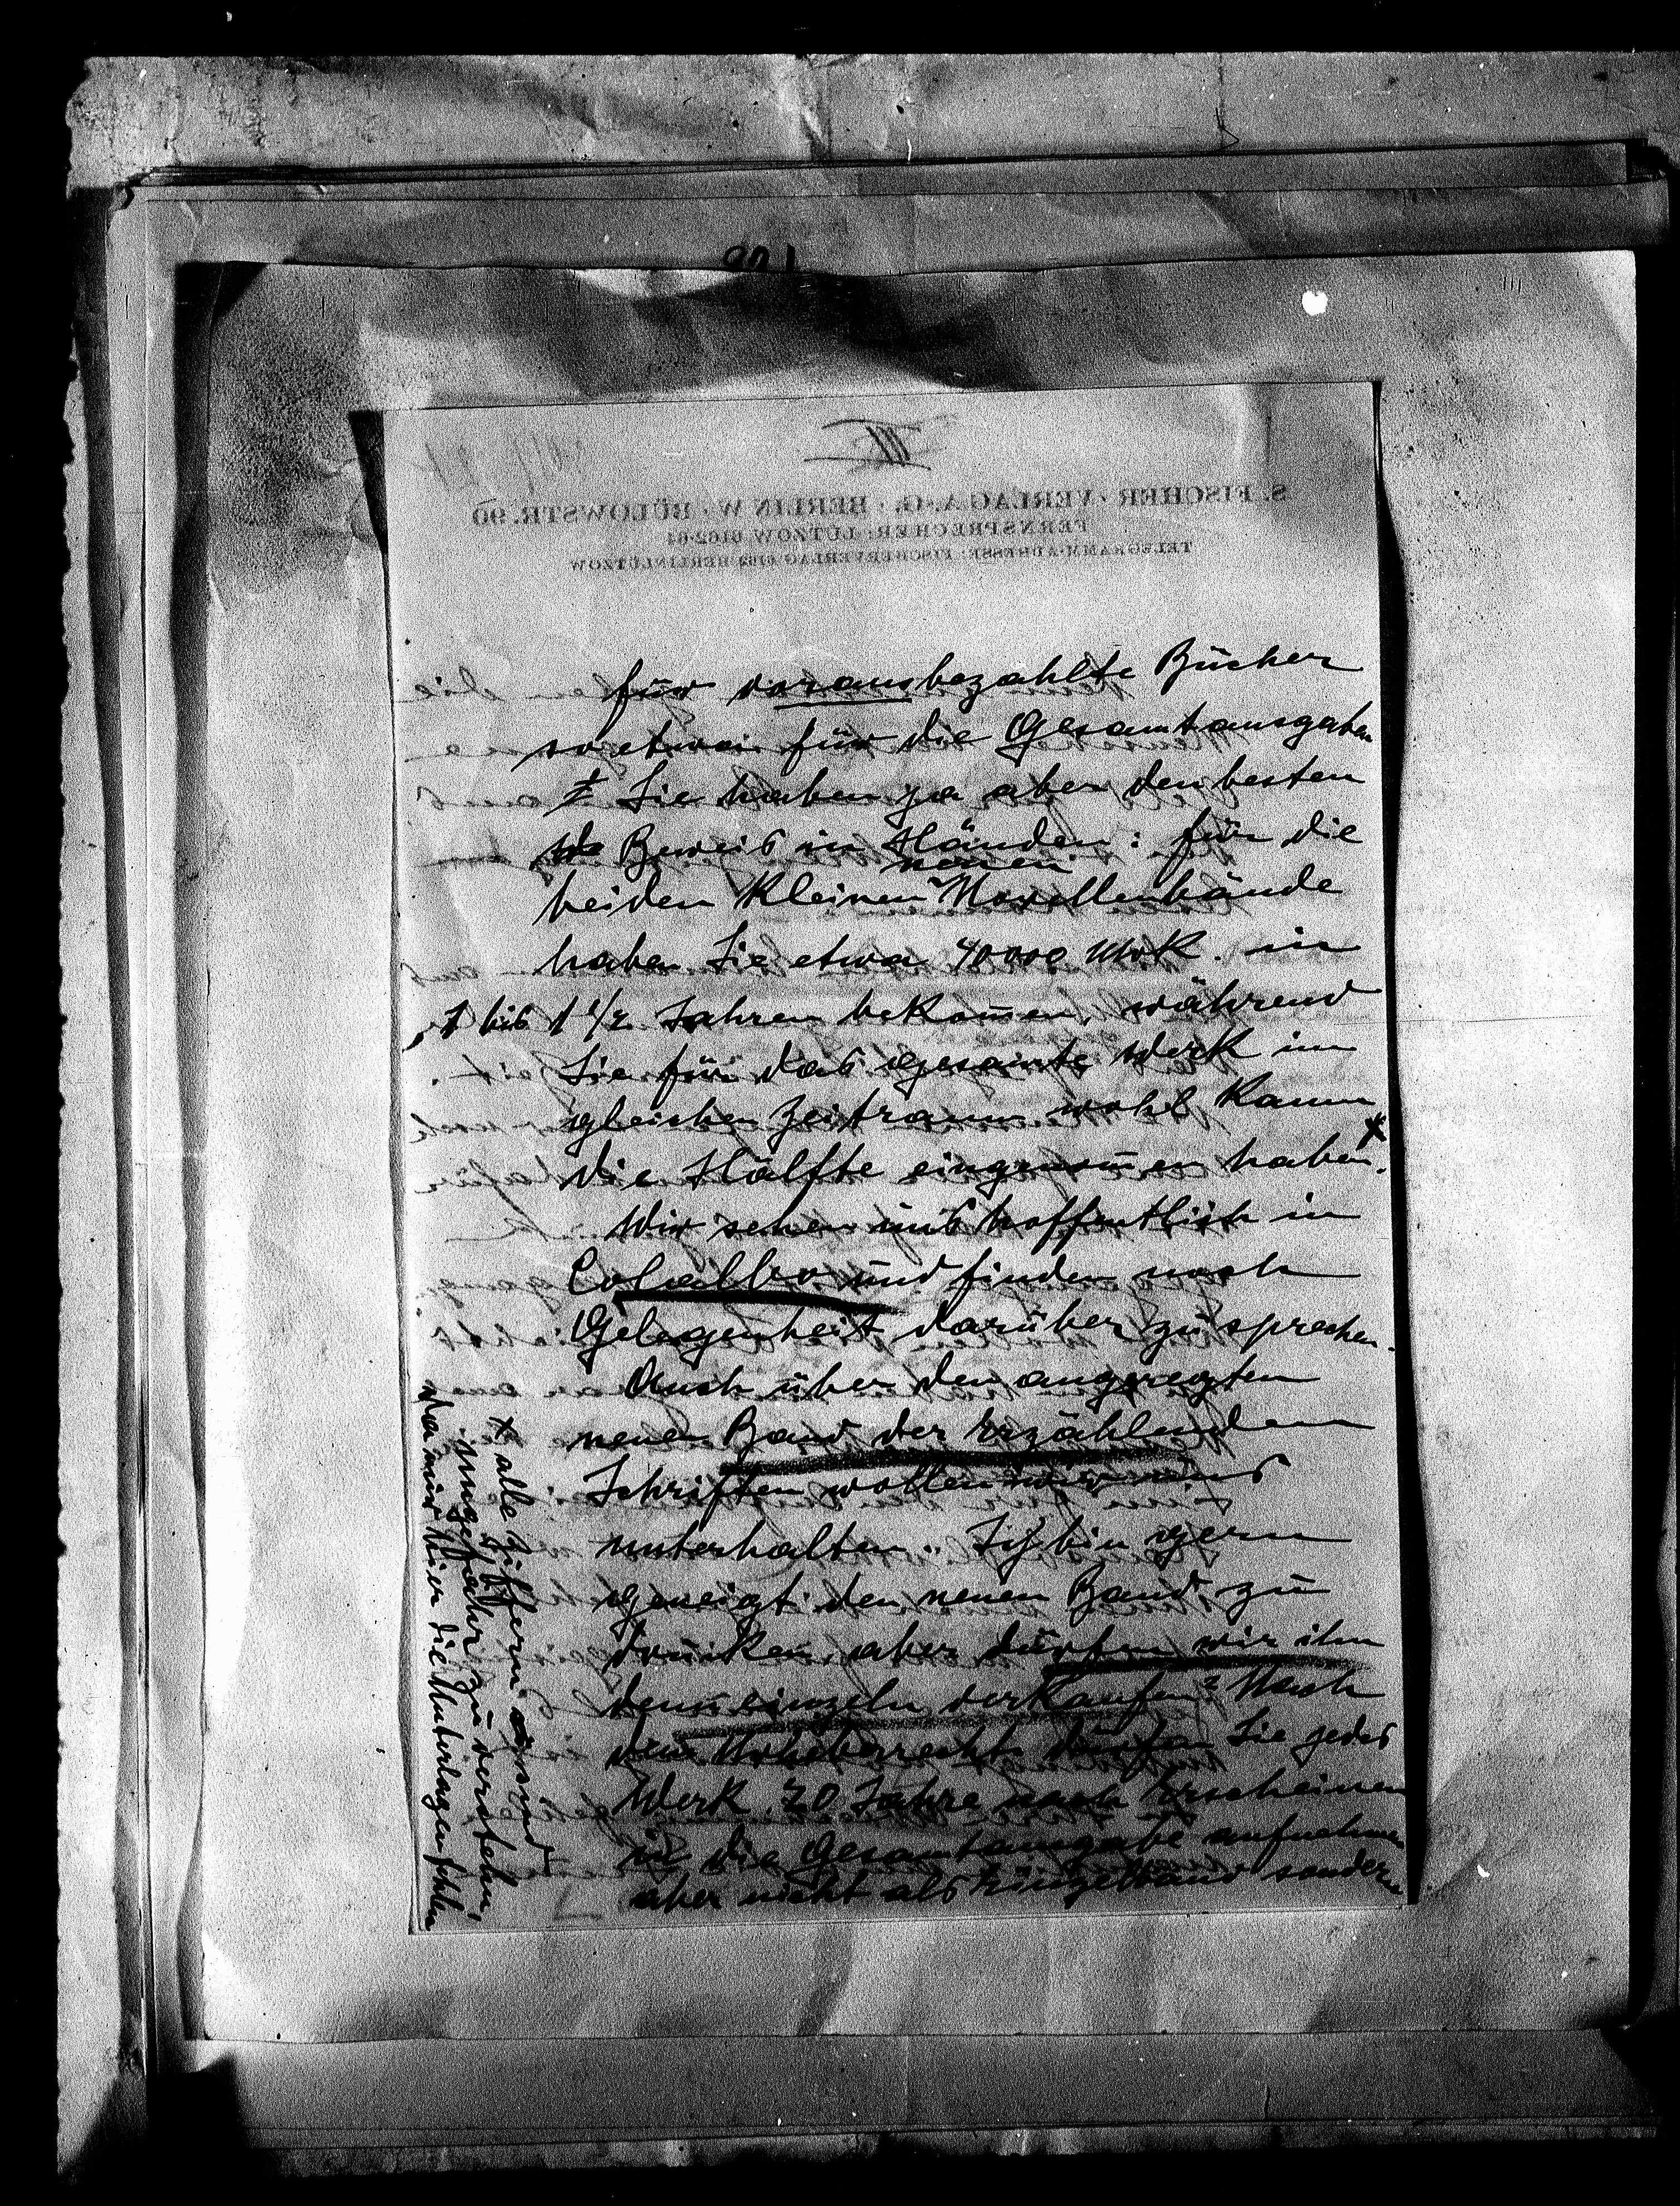 III
S. FISCHER · VERLAG A.-G. · BERLIN W · BÜLOWSTR. 90
FERNSPRECHER: LÜTZOW 6162-64
TELEGRAMM-ADRESSE: FISCHERVERLAG 6162 BERLINLÜTZOW
für vorausbezahlte Bücher
so etwa für die Gesamtausgaben
Sie haben ja aber den besten
Beweis in Händen: für die
neuen
beiden kleinen Novellenbände
haben Sie etwa 40000 Mk. in
1 bis 1 1/2 Jahren bekom̄en, während
Sie für das gesamte Werk im
gleichen Zeitraum wohl kaum
die Hälfte eingenom̄en haben. x
Wir sehen uns hoffentlich in
Colalbo und finden noch
Gelegenheit darüber zu sprechen.
Auch über den angeregten
neuen Band der erzählenden
Schriften wollen wir uns
unterhalten. Ich bin gern
geneigt den neuen Band zu
drucken, aber dürfen wir ihn
denn einzeln verkaufen? Nach
dem Urheberrecht dürfen Sie jedes
Werk 20 Jahre nach Erscheinen
in die Gesamtausgabe aufnehmen
aber nicht als Einzelband sondern
x alle Ziffern sind
ungefähr zu verstehen,
da mir hier die Unterlagen fehlen